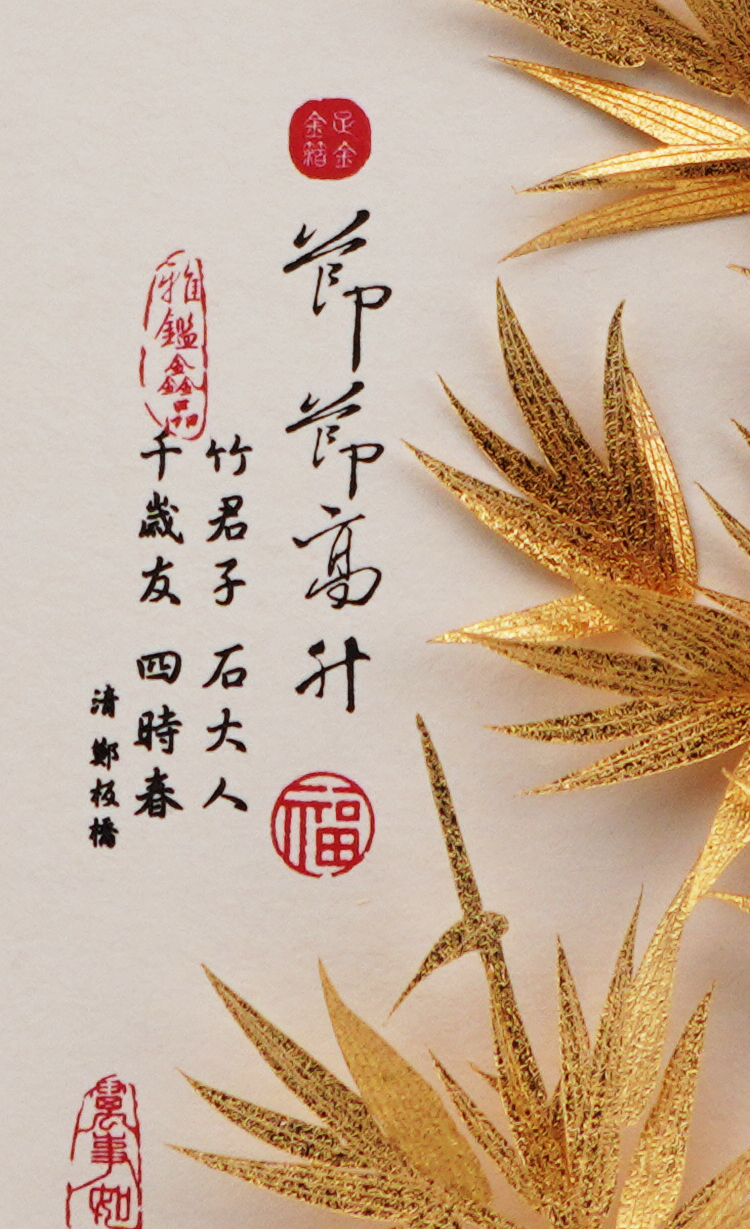 足金
金箔
節節高升
福
竹君子 石大人
千歲友 四時春
清 鄭板橋
雅鑑鑫品
萬事如